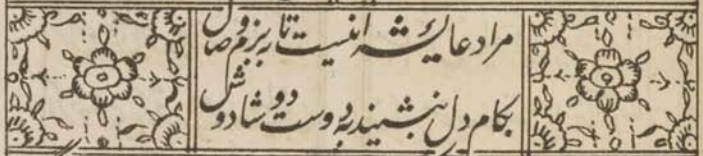 مراد عایشه اینست تا به بزم وصال
بکام دل بنشیند بدوست دوشادوش